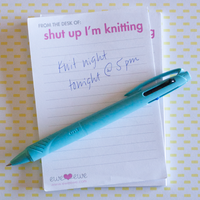 FROM THE DESK OF:
shut up I'm knitting
Knit night
tonight @ 5 pm
ewe ewe